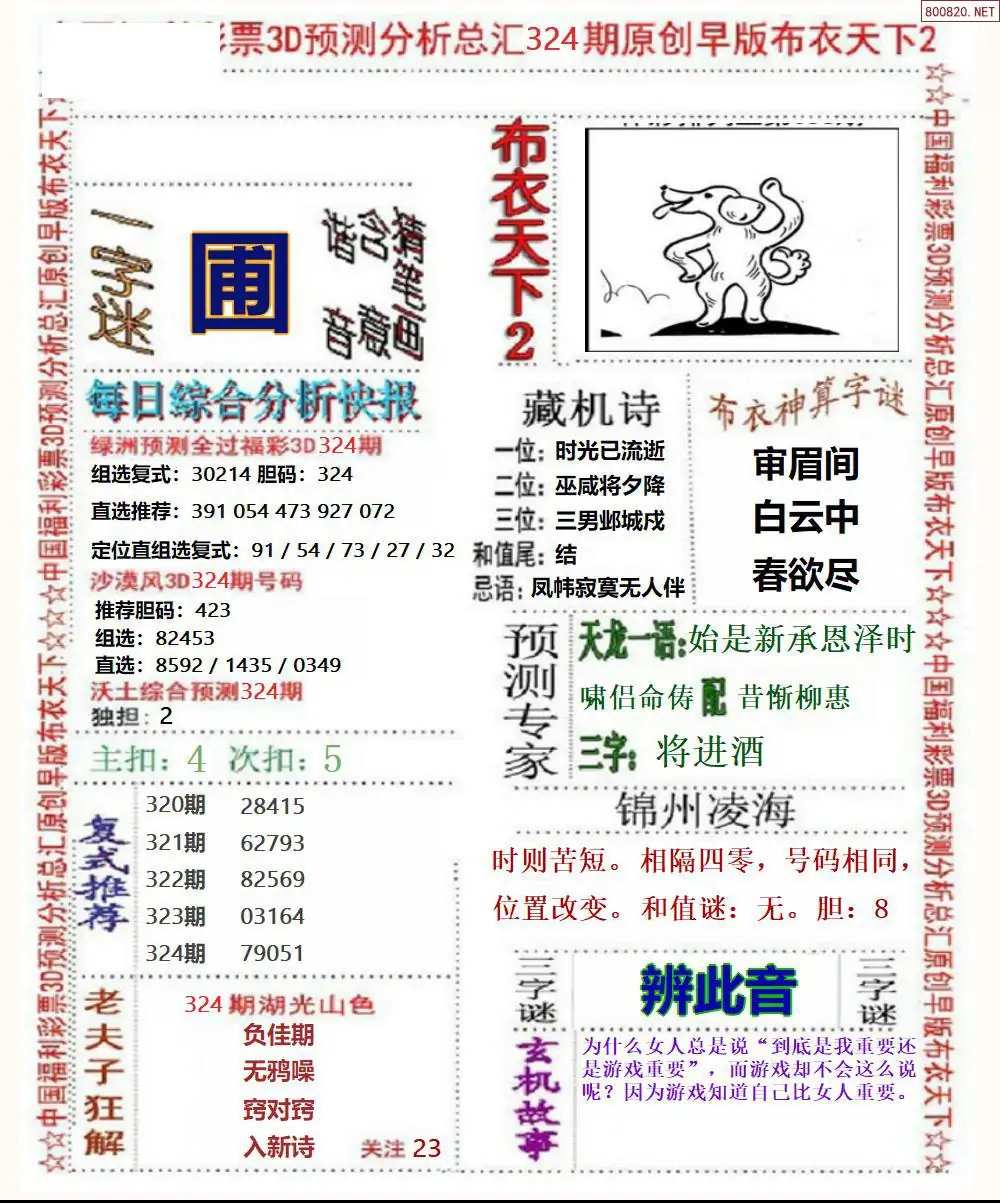 800820.NET
票3D预测分析总汇324期原创早版布衣天下2
☆☆中国福利彩票3D预测分析总汇原创早版布衣天下☆☆☆☆中国福利彩票3D预测分析总汇原创早版布衣天下☆☆
一字迷
圃
猜笔画
含意
谐音
布衣天下2
每日综合分析快报
绿洲预测全过福彩3D324期
组选复式：30214 胆码：324
直选推荐：391 054 473 927 072
定位直组选复式：91 / 54 / 73 / 27 / 32
沙漠风3D324期号码
推荐胆码：423
组选：82453
直选：8592 / 1435 / 0349
沃土综合预测324期
独担：2
主扣：4 次扣：5
复式推荐
320期 28415
321期 62793
322期 82569
323期 03164
324期 79051
老夫子狂解
324期湖光山色
负佳期
无鸦噪
窍对窍
入新诗
关注 23
藏机诗
一位：时光已流逝
二位：巫咸将夕降
三位：三男邺城戍
和值尾：结
忌语：凤帏寂寞无人伴
布衣神算字谜
审眉间
白云中
春欲尽
预测专家
天龙一语:始是新承恩泽时
啸侣命俦 配 昔惭柳惠
三字：将进酒
锦州凌海
时则苦短。相隔四零，号码相同，
位置改变。和值谜：无。胆：8
三字谜
辨此音
三字谜
玄机故事
为什么女人总是说“到底是我重要还
是游戏重要”，而游戏却不会这么说
呢？因为游戏知道自己比女人重要。
☆☆中国福利彩票3D预测分析总汇原创早版布衣天下☆☆☆☆中国福利彩票3D预测分析总汇原创早版布衣天下☆☆